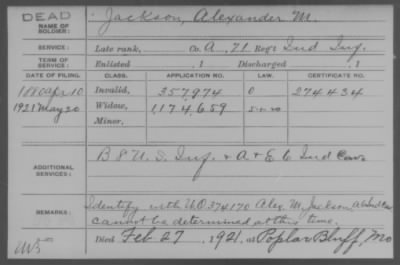 DEAD
NAME OF SOLDIER:
Jackson, Alexander M.
SERVICE:
Late rank, Co. A, 71 Reg't Ind Inf.
TERM OF SERVICE:
Enlisted , 1 Discharged , 1
DATE OF FILING. CLASS. APPLICATION NO. LAW. CERTIFICATE NO.
1880 Apr 10 Invalid, 357,974 0 274434
1921 May 20 Widow, 1,174,659 5-1-20
Minor,
ADDITIONAL SERVICES:
B 8 U.S. Inf. + A + E 6 Ind Cav
REMARKS:
Identify with U.O. 374170 Alex. M. Jackson, A 6 Ind Cav
cannot be determined at this time.
Died Feb 27, 1921, at Poplar Bluff, Mo